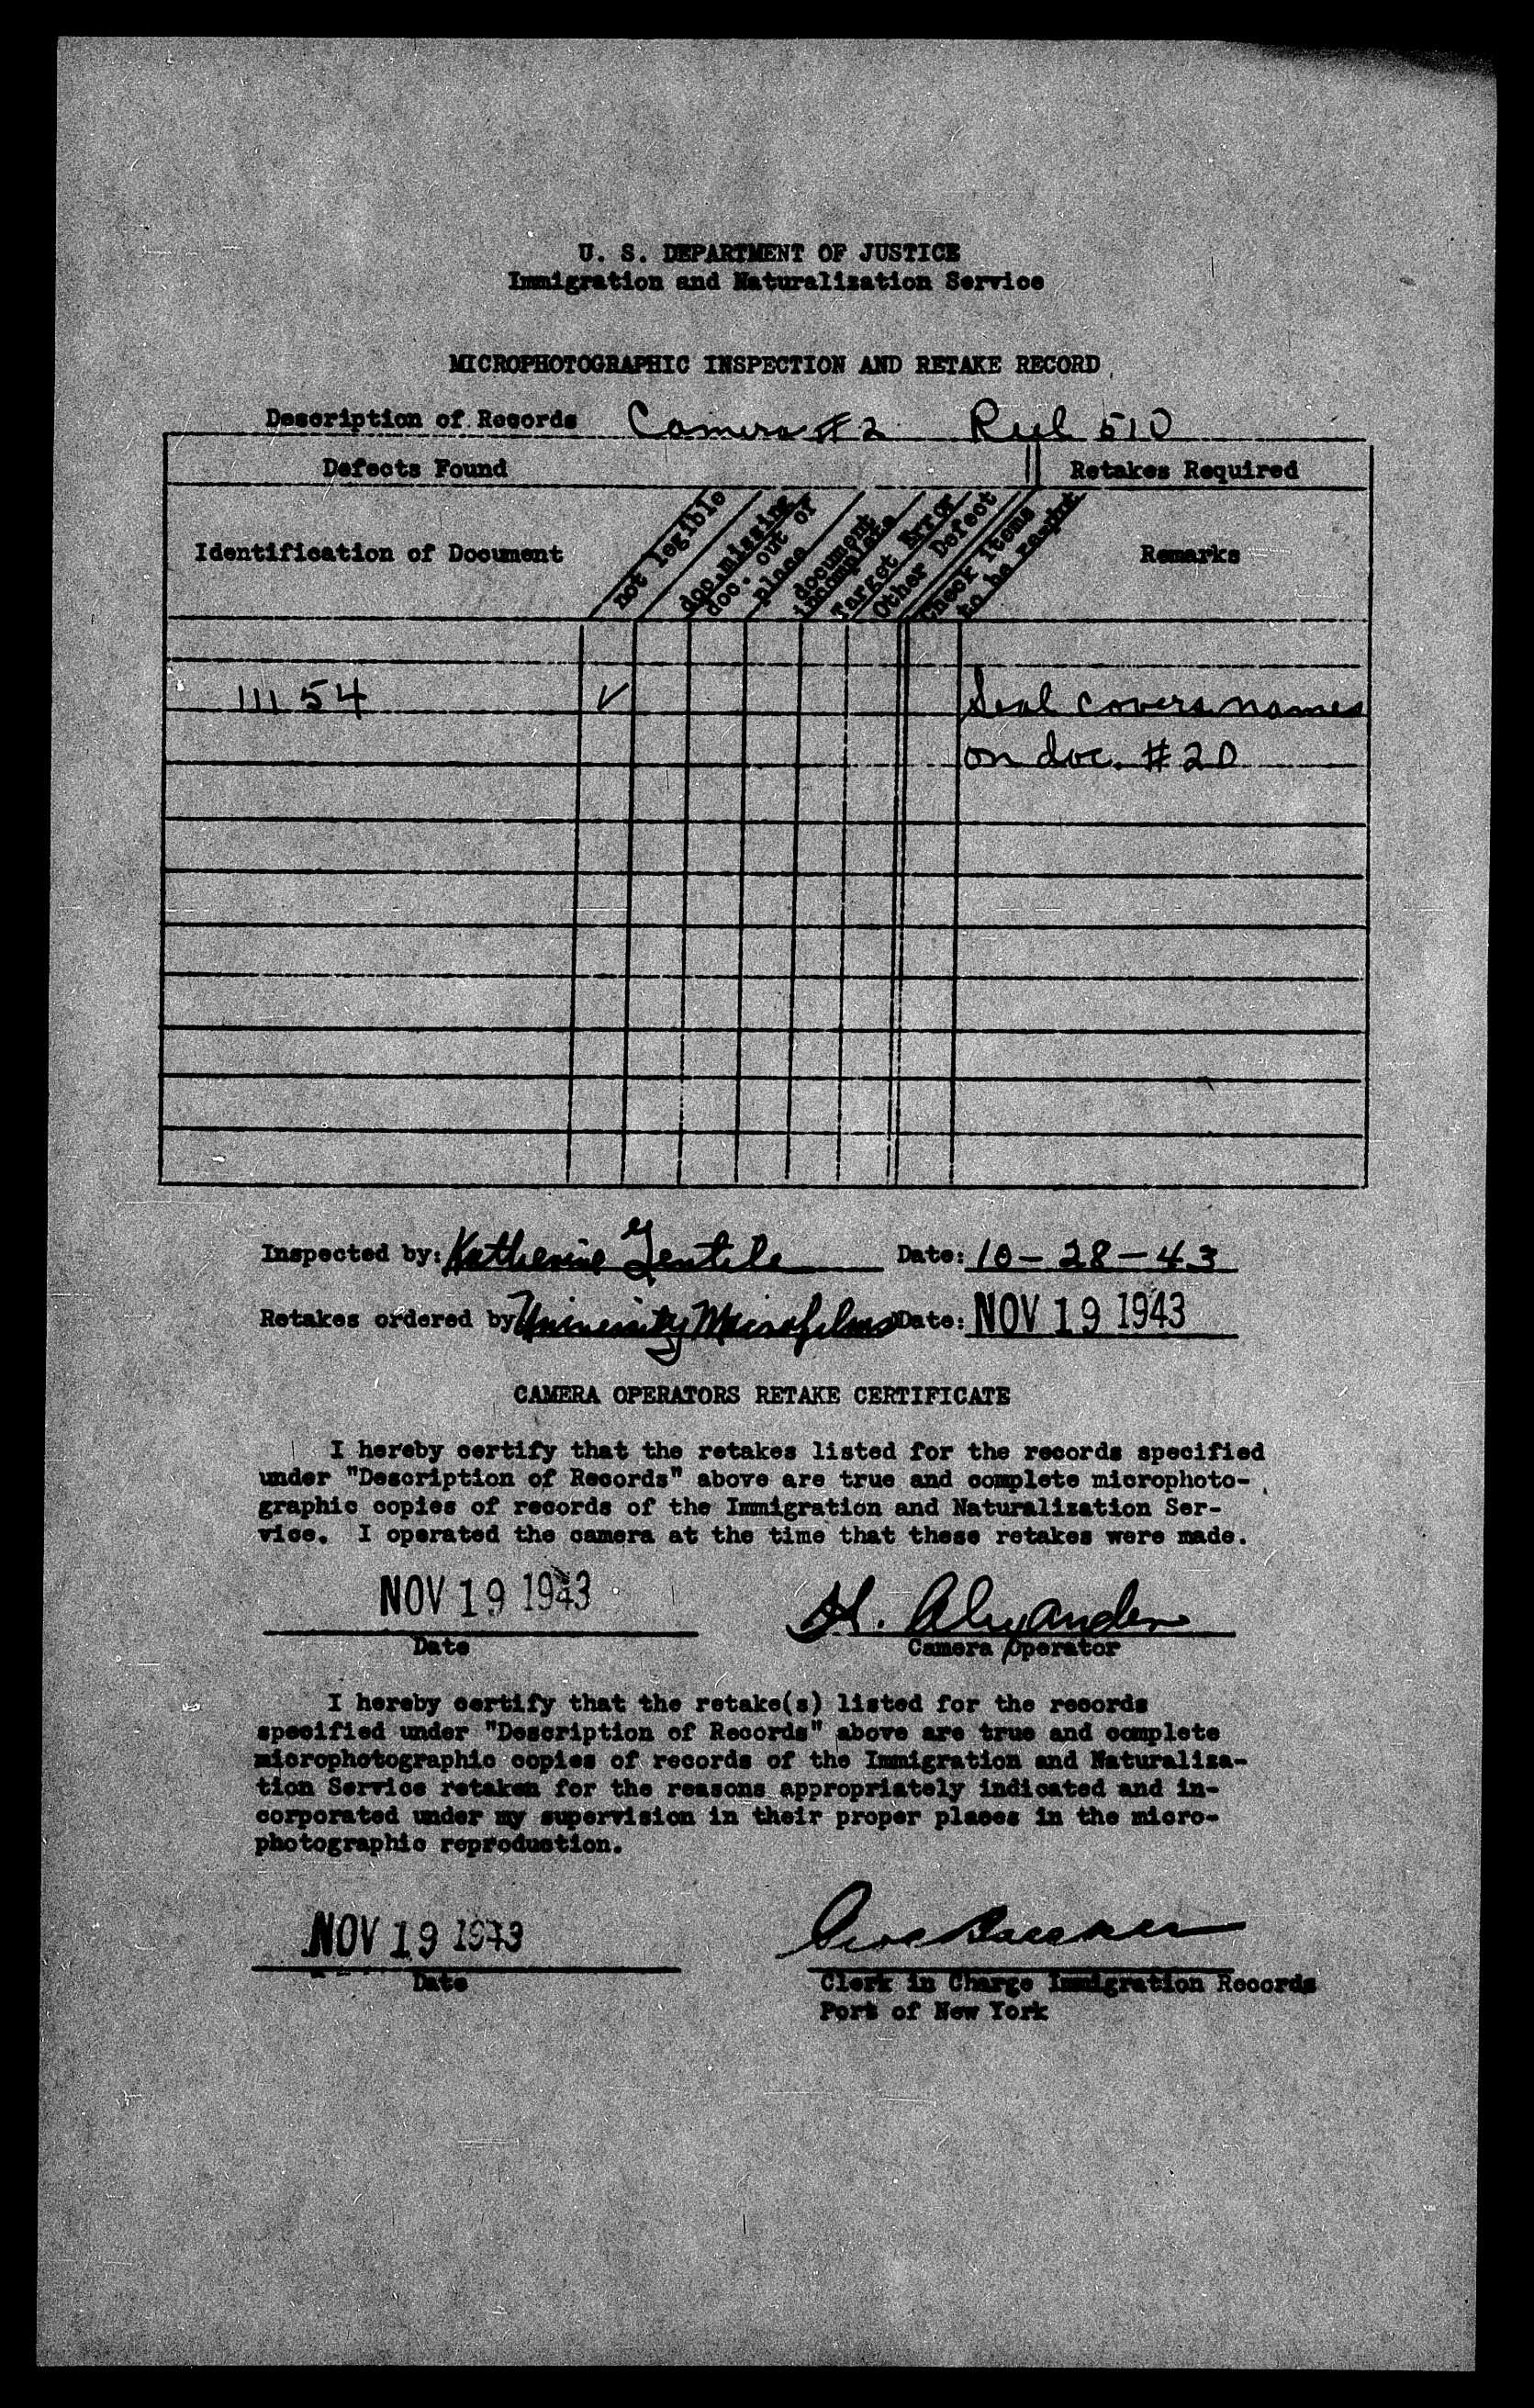 U. S. DEPARTMENT OF JUSTICE
Immigration and Naturalization Service
MICROPHOTOGRAPHIC INSPECTION AND RETAKE RECORD
Description of Records Camera #2 Reel 510
Defects Found
Retakes Required
Identification of Document
not legible
doc. missing
doc. out of
place
document
incomplete
Target Error
Other Defect
Check items
to be
Remarks
111 54 ✓ Seal covers names
on doc. #20
Inspected by: Katherine Gentile Date: 10-28-43
Retakes ordered by University Microfilms Date: NOV 19 1943
CAMERA OPERATORS RETAKE CERTIFICATE
I hereby certify that the retakes listed for the records specified
under "Description of Records" above are true and complete microphoto-
graphic copies of records of the Immigration and Naturalization Ser-
vice. I operated the camera at the time that these retakes were made.
NOV 19 1943 H. Alexander
Date Camera Operator
I hereby certify that the retake(s) listed for the records
specified under "Description of Records" above are true and complete
microphotographic copies of records of the Immigration and Naturaliza-
tion Service retaken for the reasons appropriately indicated and in-
corporated under my supervision in their proper places in the micro-
photographic reproduction.
NOV 19 1943
Date Clerk in Charge Immigration Records
Port of New York